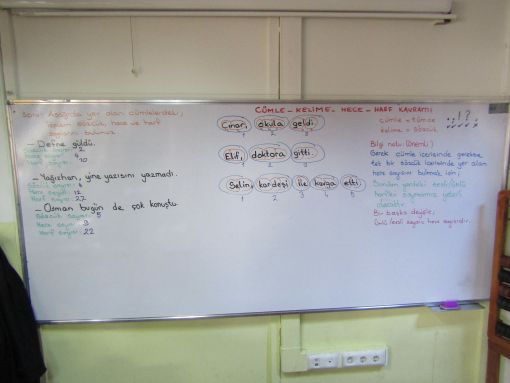 CÜMLE - KELİME - HECE - HARF KAVRAMI
Soru: Aşağıda yer alan cümlelerdeki,
toplam sözcük, hece ve harf
sayısını bulunuz.
- Defne güldü.
Sözcük sayısı: 2
Hece sayısı: 4
10
- Yağızhan, yine yazısını yazmadı.
Sözcük sayısı: 4
Hece sayısı: 12
Harf sayısı: 27
- Osman bugün de çok konuştu.
Sözcük sayısı: 5
Hece sayısı: 9
Harf sayısı: 22
Çınar, okula geldi.
1 2 3
Elif, doktora gitti.
1 2 3
Selin, kardeşi ile kavga etti.
1 2 3 4 5
cümle = tümce
kelime = sözcük
Bilgi notu: (Önemli)
Gerek cümle içerisinde gerekse
tek bir sözcük içerisinde yer alan
hece sayısını bulmak için;
Bir başka deyişle;
ünlü (sesli) sayısı, hece sayısıdır.